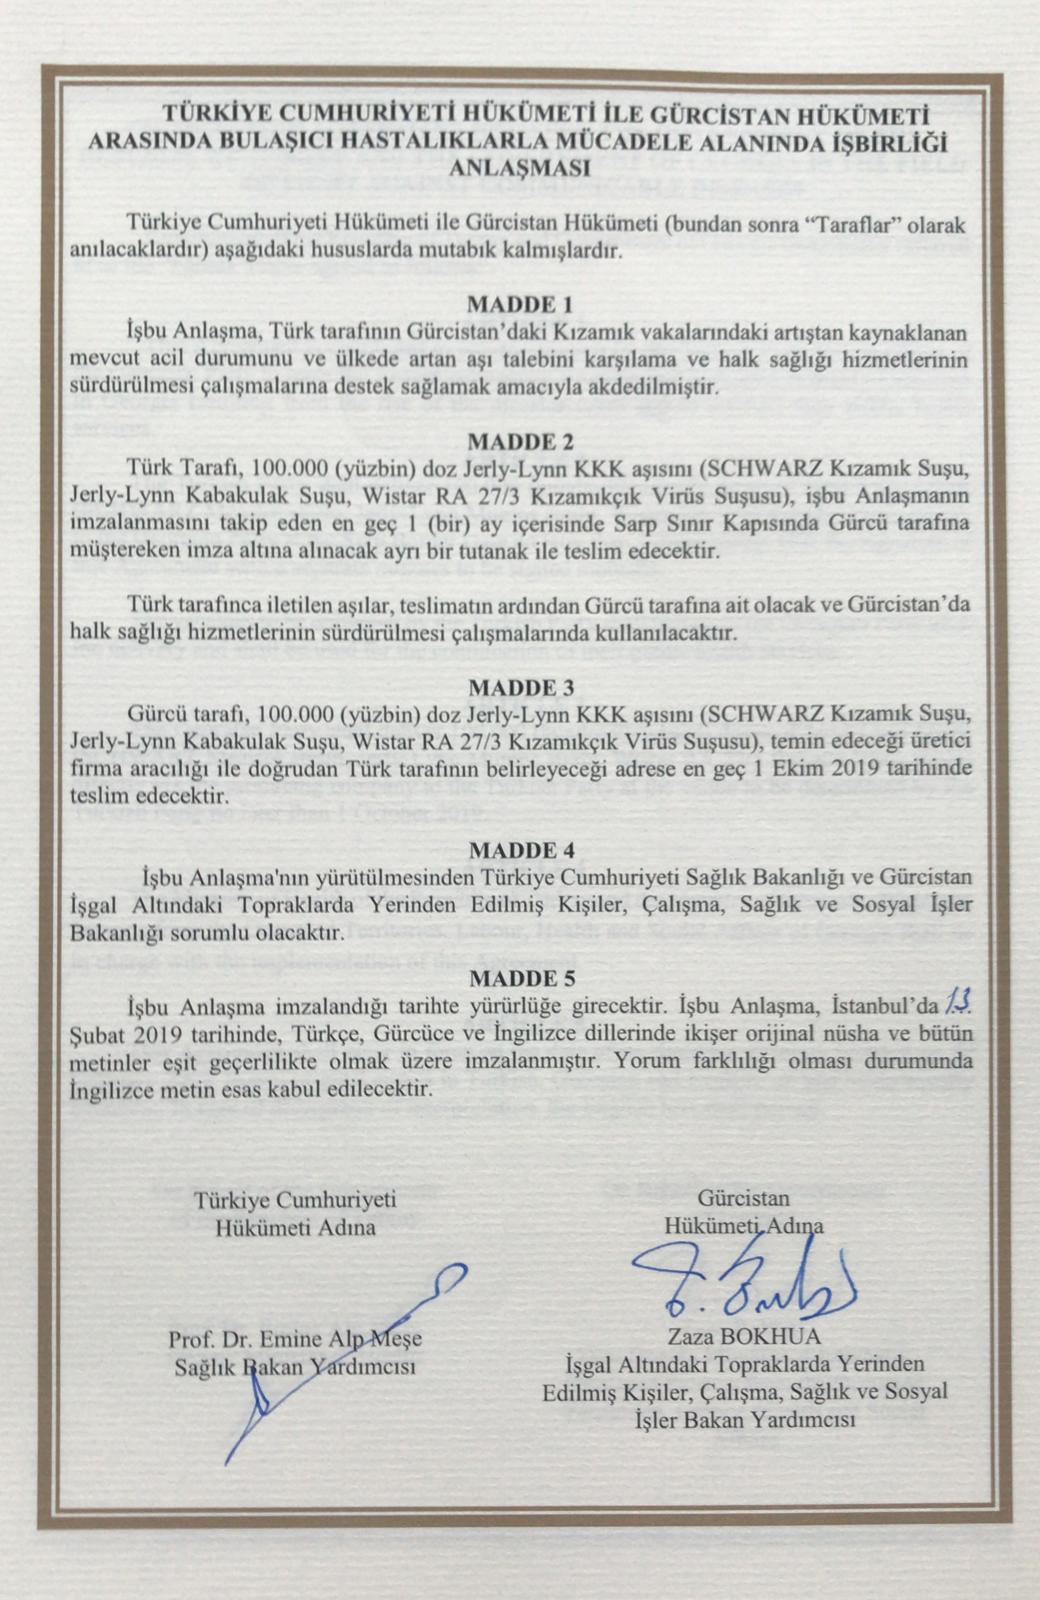 TÜRKİYE CUMHURİYETİ HÜKÜMETİ İLE GÜRCİSTAN HÜKÜMETİ
ARASINDA BULAŞICI HASTALIKLARLA MÜCADELE ALANINDA İŞBİRLİĞİ
ANLAŞMASI
Türkiye Cumhuriyeti Hükümeti ile Gürcistan Hükümeti (bundan sonra “Taraflar” olarak
anılacaklardır) aşağıdaki hususlarda mutabık kalmışlardır.
MADDE 1
İşbu Anlaşma, Türk tarafının Gürcistan’daki Kızamık vakalarındaki artıştan kaynaklanan
mevcut acil durumunu ve ülkede artan aşı talebini karşılama ve halk sağlığı hizmetlerinin
sürdürülmesi çalışmalarına destek sağlamak amacıyla akdedilmiştir.
MADDE 2
Türk Tarafı, 100.000 (yüzbin) doz Jerly-Lynn KKK aşısını (SCHWARZ Kızamık Suşu,
Jerly-Lynn Kabakulak Suşu, Wistar RA 27/3 Kızamıkçık Virüs Suşusu), işbu Anlaşmanın
imzalanmasını takip eden en geç 1 (bir) ay içerisinde Sarp Sınır Kapısında Gürcü tarafına
müştereken imza altına alınacak ayrı bir tutanak ile teslim edecektir.
Türk tarafınca iletilen aşılar, teslimatın ardından Gürcü tarafına ait olacak ve Gürcistan’da
halk sağlığı hizmetlerinin sürdürülmesi çalışmalarında kullanılacaktır.
MADDE 3
Gürcü tarafı, 100.000 (yüzbin) doz Jerly-Lynn KKK aşısını (SCHWARZ Kızamık Suşu,
Jerly-Lynn Kabakulak Suşu, Wistar RA 27/3 Kızamıkçık Virüs Suşusu), temin edeceği üretici
firma aracılığı ile doğrudan Türk tarafının belirleyeceği adrese en geç 1 Ekim 2019 tarihinde
teslim edecektir.
MADDE 4
İşbu Anlaşma'nın yürütülmesinden Türkiye Cumhuriyeti Sağlık Bakanlığı ve Gürcistan
İşgal Altındaki Topraklarda Yerinden Edilmiş Kişiler, Çalışma, Sağlık ve Sosyal İşler
Bakanlığı sorumlu olacaktır.
MADDE 5
İşbu Anlaşma imzalandığı tarihte yürürlüğe girecektir. İşbu Anlaşma, İstanbul’da 13
Şubat 2019 tarihinde, Türkçe, Gürcüce ve İngilizce dillerinde ikişer orijinal nüsha ve bütün
metinler eşit geçerlilikte olmak üzere imzalanmıştır. Yorum farklılığı olması durumunda
İngilizce metin esas kabul edilecektir.
Türkiye Cumhuriyeti
Hükümeti Adına
Prof. Dr. Emine Alp Meşe
Sağlık Bakan Yardımcısı
Gürcistan
Hükümeti Adına
Zaza BOKHUA
İşgal Altındaki Topraklarda Yerinden
Edilmiş Kişiler, Çalışma, Sağlık ve Sosyal
İşler Bakan Yardımcısı